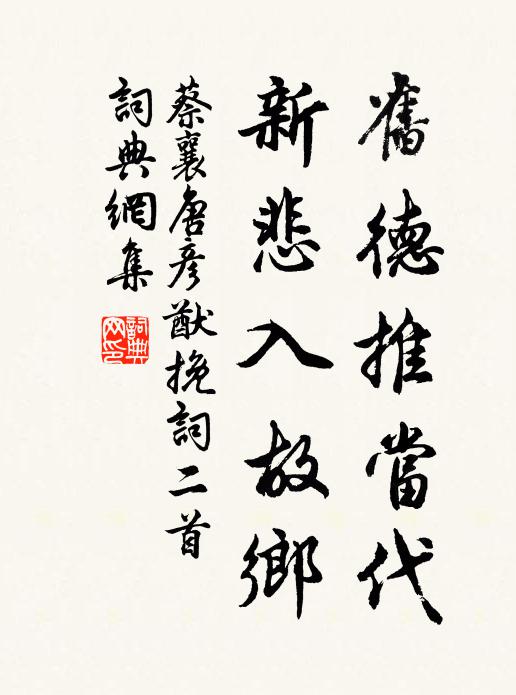 舊德推當代
新悲入故鄉
蔡襄唐彦猷挽詞二首
詞典網集
詞典網印